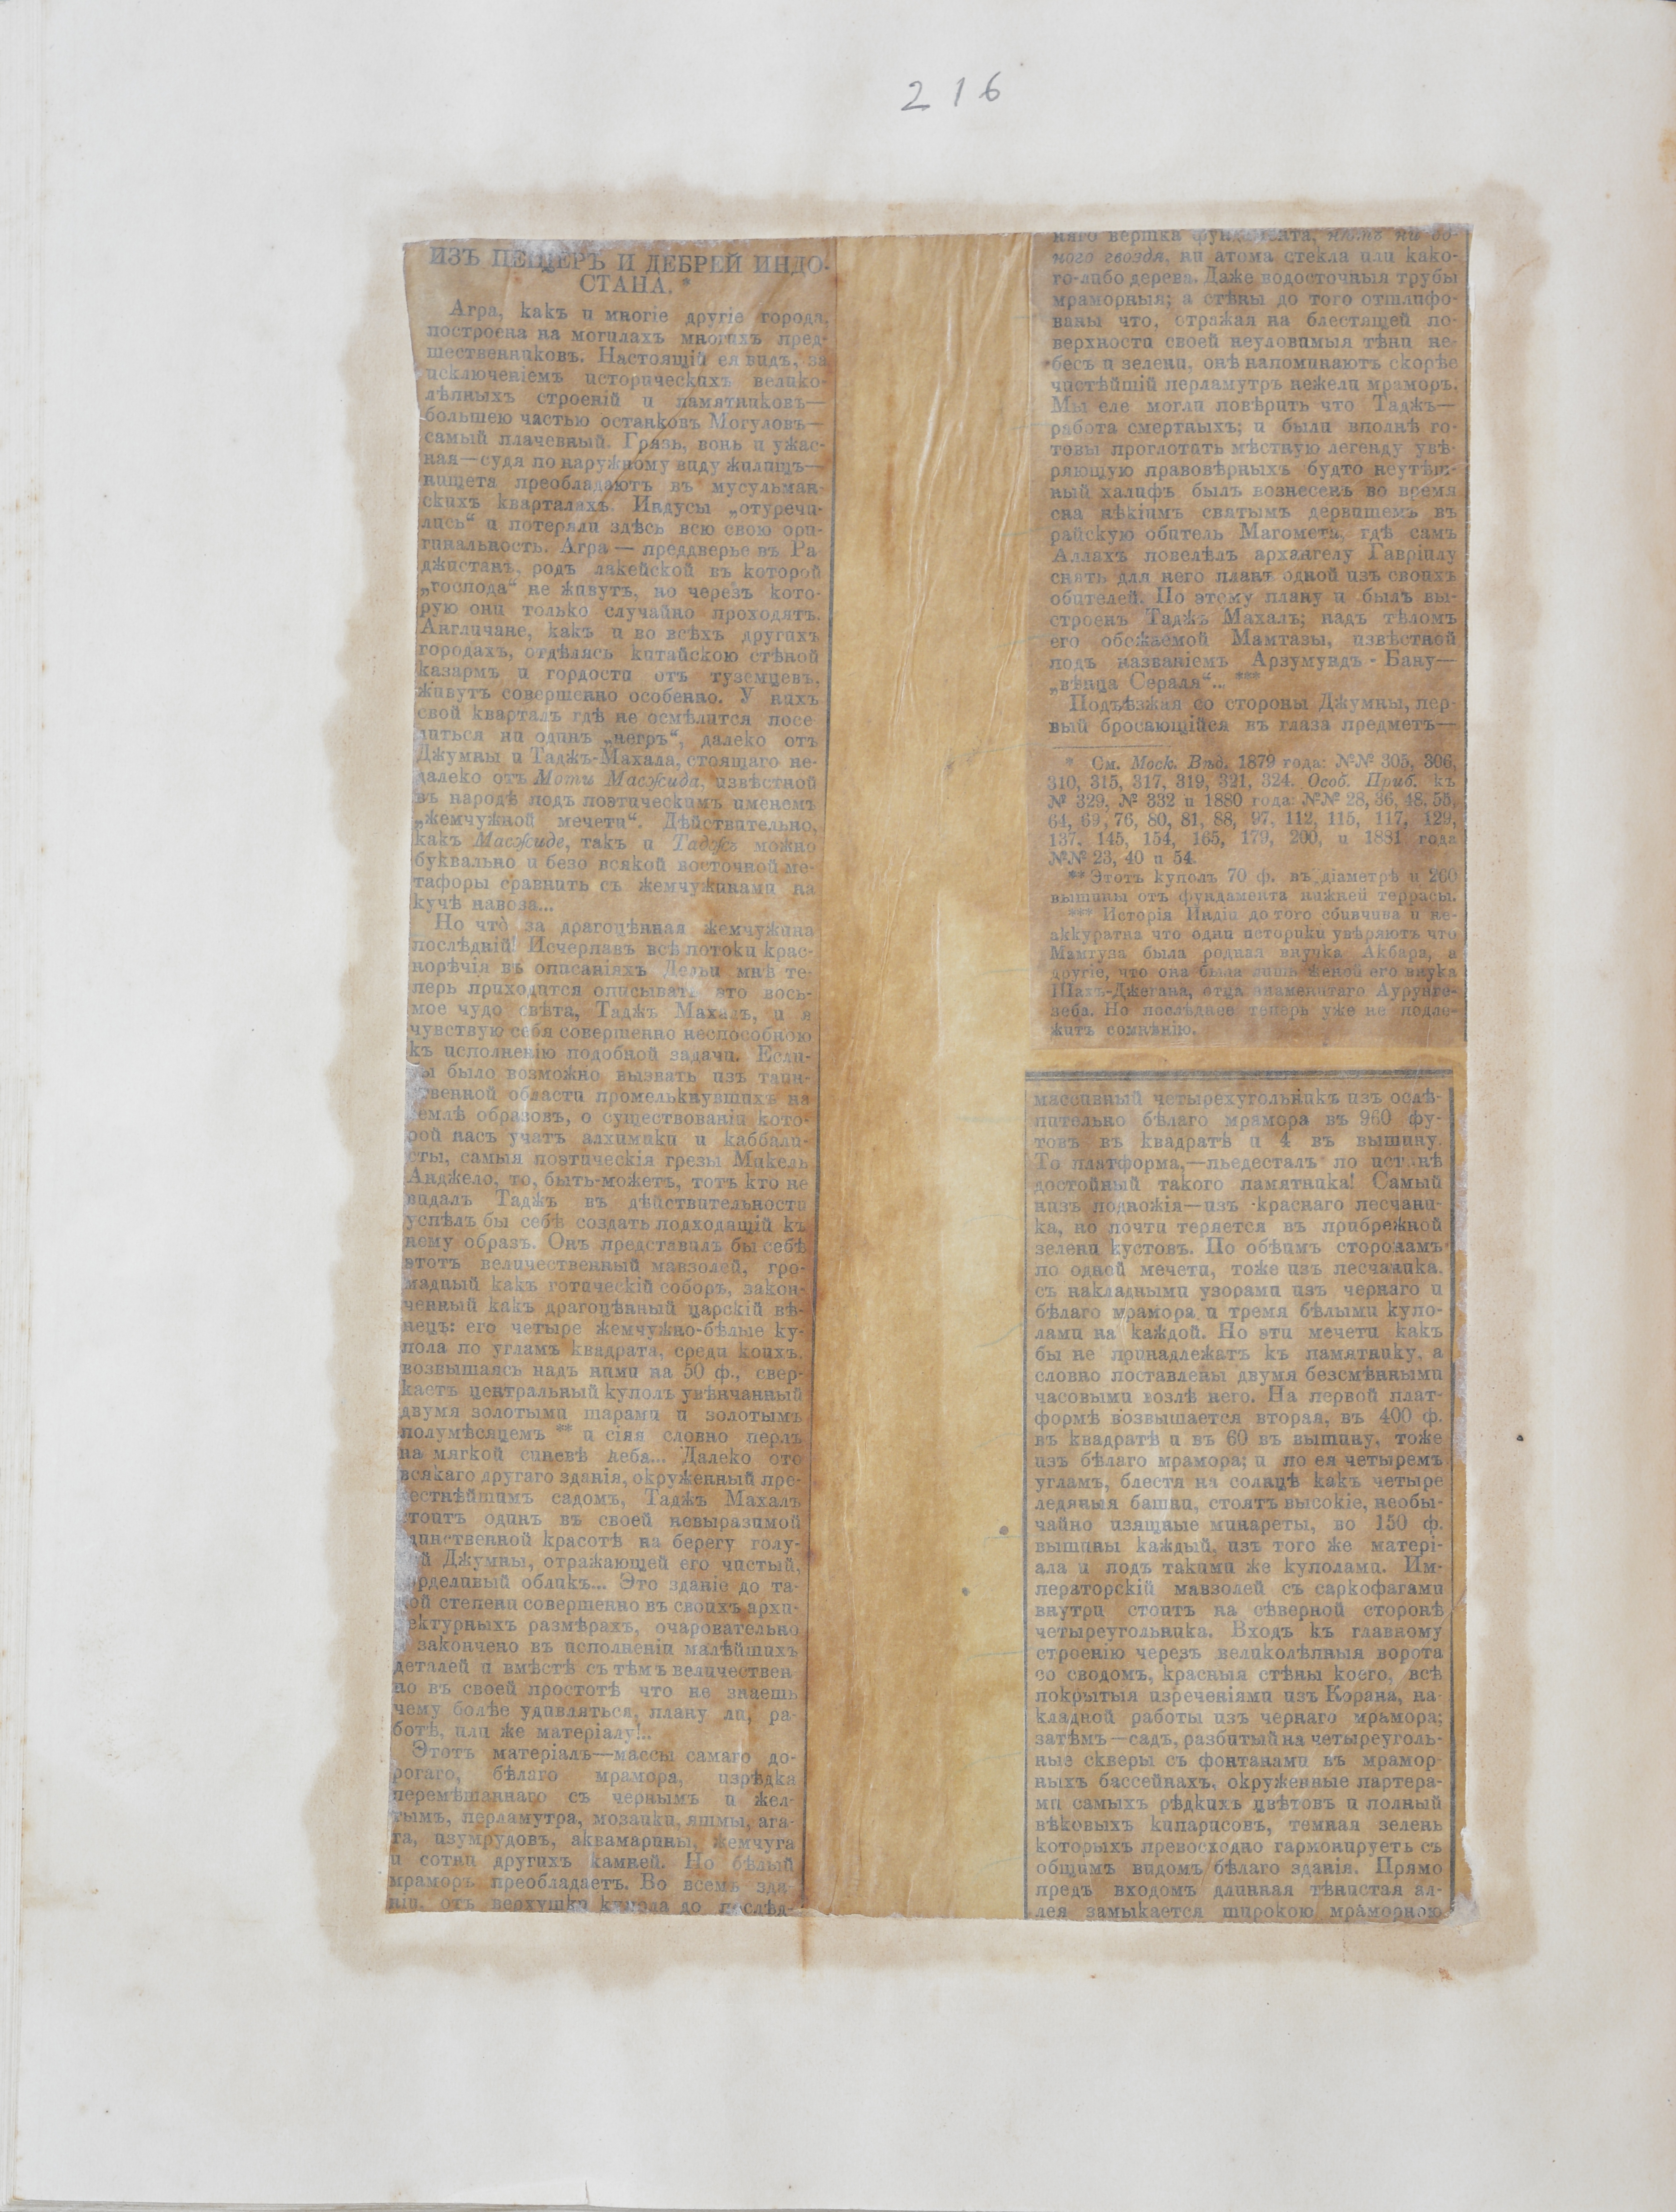 216
ИЗЪ ПЕЩЕРЪ И ДЕБРЕЙ ИНДО-
СТАНА. *
Агра, какъ и многіе другіе города,
построена на могилахъ многихъ пред-
шественниковъ. Настоящій ея видъ, за
исключеніемъ историческихъ велико-
лѣпныхъ строеній и памятниковъ—
большею частью останковъ Могуловъ—
самый плачевный. Грязь, вонь и ужас-
ная—судя по наружному виду жилищъ—
нищета преобладаютъ въ мусульман-
скихъ кварталахъ. Индусы „отуречи-
лись“ и потеряли здѣсь всю свою ори-
гинальность. Агра — преддверье въ Ра
джистанъ, родъ лакейской въ которой
„господа“ не живутъ, но черезъ кото-
рую они только случайно проходятъ.
Англичане, какъ и во всѣхъ другихъ
городахъ, отдѣлясь китайскою стѣной
казармъ и гордости отъ туземцевъ,
живутъ совершенно особенно. У нихъ
свой кварталъ гдѣ не осмѣлится посе
литься ни одинъ „негръ“, далеко отъ
Джумны и Таджъ-Махала, стоящаго не-
далеко отъ Моти Масжида, извѣстной
въ народѣ подъ поэтическимъ именемъ
„жемчужной мечети“. Дѣйствительно,
какъ Масжиде, такъ и Таджъ можно
буквально и безо всякой восточной ме-
тафоры сравнить съ жемчужинами на
кучѣ навоза...
Но что̀ за драгоцѣнная жемчужина
послѣдній! Исчерпавъ всѣ потоки крас-
норѣчія въ описаніяхъ Дельи мнѣ те-
перь приходится описывать это вось-
мое чудо свѣта, Таджъ Махалъ, и я
чувствую себя совершенно неспособною
къ исполненію подобной задачи. Если-
бы было возможно вызвать изъ таин-
ственной области промелькнувшихъ на
землѣ образовъ, о существованіи кото-
рой насъ учатъ алхимики и каббали-
сты, самыя поэтическія грезы Микель
Анджело, то, быть-можетъ, тотъ кто не
видалъ Таджъ въ дѣйствительности
успѣлъ бы себѣ создать подходящій къ
нему образъ. Онъ представилъ бы себѣ
этотъ величественный мавзолей, гро-
мадный какъ готическій соборъ, закон-
ченный какъ драгоцѣнный царскій вѣ-
нецъ: его четыре жемчужно-бѣлые ку-
пола по угламъ квадрата, среди коихъ,
возвышаясь надъ ними на 50 ф., свер-
каетъ центральный куполъ увѣнчанный
двумя золотыми шарами и золотымъ
полумѣсяцемъ ** и сіяя словно перлъ
на мягкой синевѣ неба... Далеко ото
всякаго другаго зданія, окруженный пре-
лестнѣйшимъ садомъ, Таджъ Махалъ
стоитъ одинъ въ своей невыразимой
единственной красотѣ на берегу голу-
бой Джумны, отражающей его чистый,
горделивый обликъ... Это зданіе до та-
кой степени совершенно въ своихъ архи-
тектурныхъ размѣрахъ, очаровательно
и закончено въ исполненіи малѣйшихъ
деталей и вмѣстѣ съ тѣмъ величествен
но въ своей простотѣ что не знаешь
чему болѣе удивляться, плану ли, ра-
ботѣ, или же матеріалу!..
Этотъ матеріалъ—массы самаго до-
рогаго, бѣлаго мрамора, изрѣдка
перемѣшаннаго съ чернымъ и жел-
тымъ, перламутра, мозаики, яшмы, ага-
та, изумрудовъ, аквамарины, жемчуга
и сотни другихъ камней. Но бѣлый
мраморъ преобладаетъ. Во всемъ зда-
ніи, отъ верхушки купола до послѣд-
няго вершка фундамента, нѣтъ ни од-
ного гвоздя, ни атома стекла или како-
го-либо дерева. Даже водосточныя трубы
мраморныя; а стѣны до того отшлифо-
ваны что, отражая на блестящей по-
верхности своей неуловимыя тѣни не-
бесъ и зелени, онѣ напоминаютъ скорѣе
чистѣйшій перламутръ нежели мраморъ.
Мы еле могли повѣрить что Таджъ—
работа смертныхъ; и были вполнѣ го-
товы проглотить мѣстную легенду увѣ-
ряющую правовѣрныхъ будто неутѣш-
ный халифъ былъ вознесенъ во время
сна нѣкіимъ святымъ дервишемъ въ
райскую обитель Магомета, гдѣ самъ
Аллахъ повелѣлъ архангелу Гавріилу
снять для него планъ одной изъ своихъ
обителей. По этому плану и былъ вы-
строенъ Таджъ Махалъ; надъ тѣломъ
его обожаемой Мамтазы, извѣстной
подъ названіемъ Арзумундъ - Бану—
„вѣнца Сераля“... ***
Подъѣзжая со стороны Джумны, пер-
вый бросающійся въ глаза предметъ—
* См. Моск. Вѣд. 1879 года: №№ 305, 306,
310, 315, 317, 319, 321, 324. Особ. Приб. къ
№ 329, № 332 и 1880 года: №№ 28, 36, 48, 55,
64, 69, 76, 80, 81, 88, 97, 112, 115, 117, 129,
137, 145, 154, 165, 179, 200, и 1881 года
№№ 23, 40 и 54.
** Этотъ куполъ 70 ф. въ діаметрѣ и 260
вышины отъ фундамента нижней террасы.
*** Исторія Индіи до того сбивчива и не-
аккуратна что одни историки увѣряютъ что
Мамтуза была родная внучка Акбара, а
другіе, что она была лишь женой его внука
Шахъ-Джегана, отца знаменитаго Аурунге-
зеба. Но послѣднее теперь уже не подле-
житъ сомнѣнію.
массивный четырехугольникъ изъ ослѣ-
пительно бѣлаго мрамора въ 960 фу-
товъ въ квадратѣ и 4 въ вышину.
То платформа,—пьедесталъ по истинѣ
достойный такого памятника! Самый
низъ подножія—изъ краснаго песчани-
ка, но почти теряется въ прибрежной
зелени кустовъ. По обѣимъ сторонамъ
по одной мечети, тоже изъ песчаника,
съ накладными узорами изъ чернаго и
бѣлаго мрамора и тремя бѣлыми купо-
лами на каждой. Но эти мечети какъ
бы не принадлежатъ къ памятнику, а
словно поставлены двумя безсмѣнными
часовыми возлѣ него. На первой плат-
формѣ возвышается вторая, въ 400 ф.
въ квадратѣ и въ 60 въ вышину, тоже
изъ бѣлаго мрамора; и по ея четыремъ
угламъ, блестя на солнцѣ какъ четыре
ледяныя башни, стоятъ высокіе, необы-
чайно изящные минареты, во 150 ф.
вышины каждый, изъ того же матері-
ала и подъ такими же куполами. Им-
ператорскій мавзолей съ саркофагами
внутри стоитъ на сѣверной сторонѣ
четыреугольника. Входъ къ главному
строенію черезъ великолѣпныя ворота
со сводомъ, красныя стѣны коего, всѣ
покрытыя изреченіями изъ Корана, на-
кладной работы изъ чернаго мрамора;
затѣмъ—садъ, разбитый на четыреуголь-
ные скверы съ фонтанами въ мрамор-
ныхъ бассейнахъ, окруженные партера-
ми самыхъ рѣдкихъ цвѣтовъ и полный
вѣковыхъ кипарисовъ, темная зелень
которыхъ превосходно гармонируетъ съ
общимъ видомъ бѣлаго зданія. Прямо
предъ входомъ длинная тѣнистая ал-
лея замыкается широкою мраморною